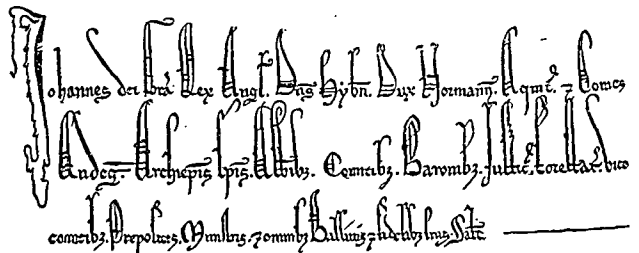 Johannes dei Gra Rex Angl. Dns Hybn. Dux Normann. Aquit. ⁊ Comes
Andeg. Archiepis Epis. Abbibz. Comitibz. Baronibz. Justic. Forestar. vice
comitibz. Prepositis. Ministris. ⁊ omnibz Ballivis ⁊ fidelibz suis. Salt.